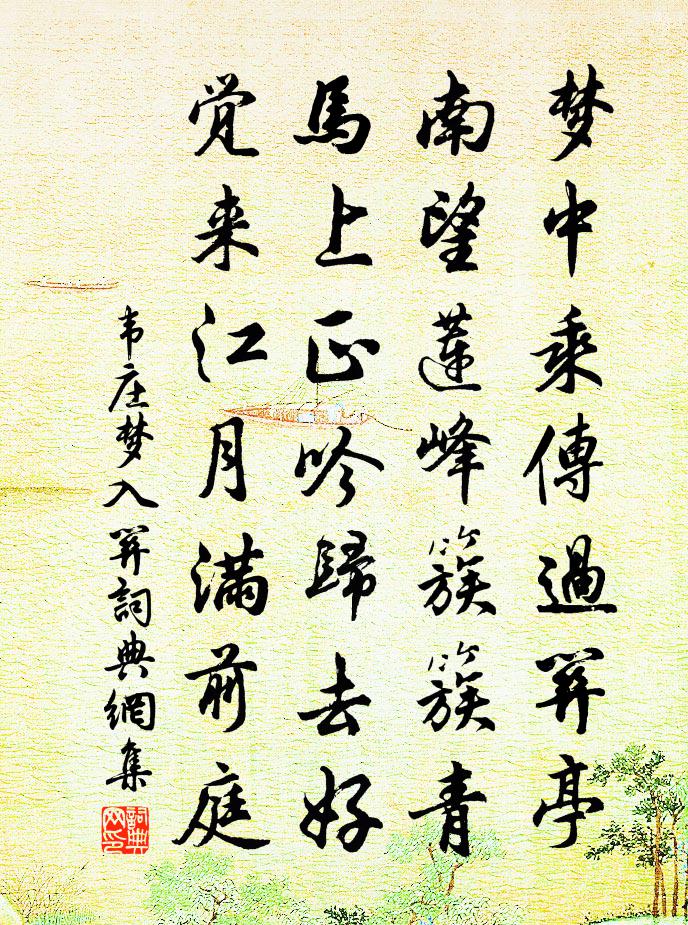 梦中乘傳過关亭
南望蓮峰簇簇青
馬上正吟歸去好
觉来江月满前庭
韦庄梦入关詞典網集
詞典网印